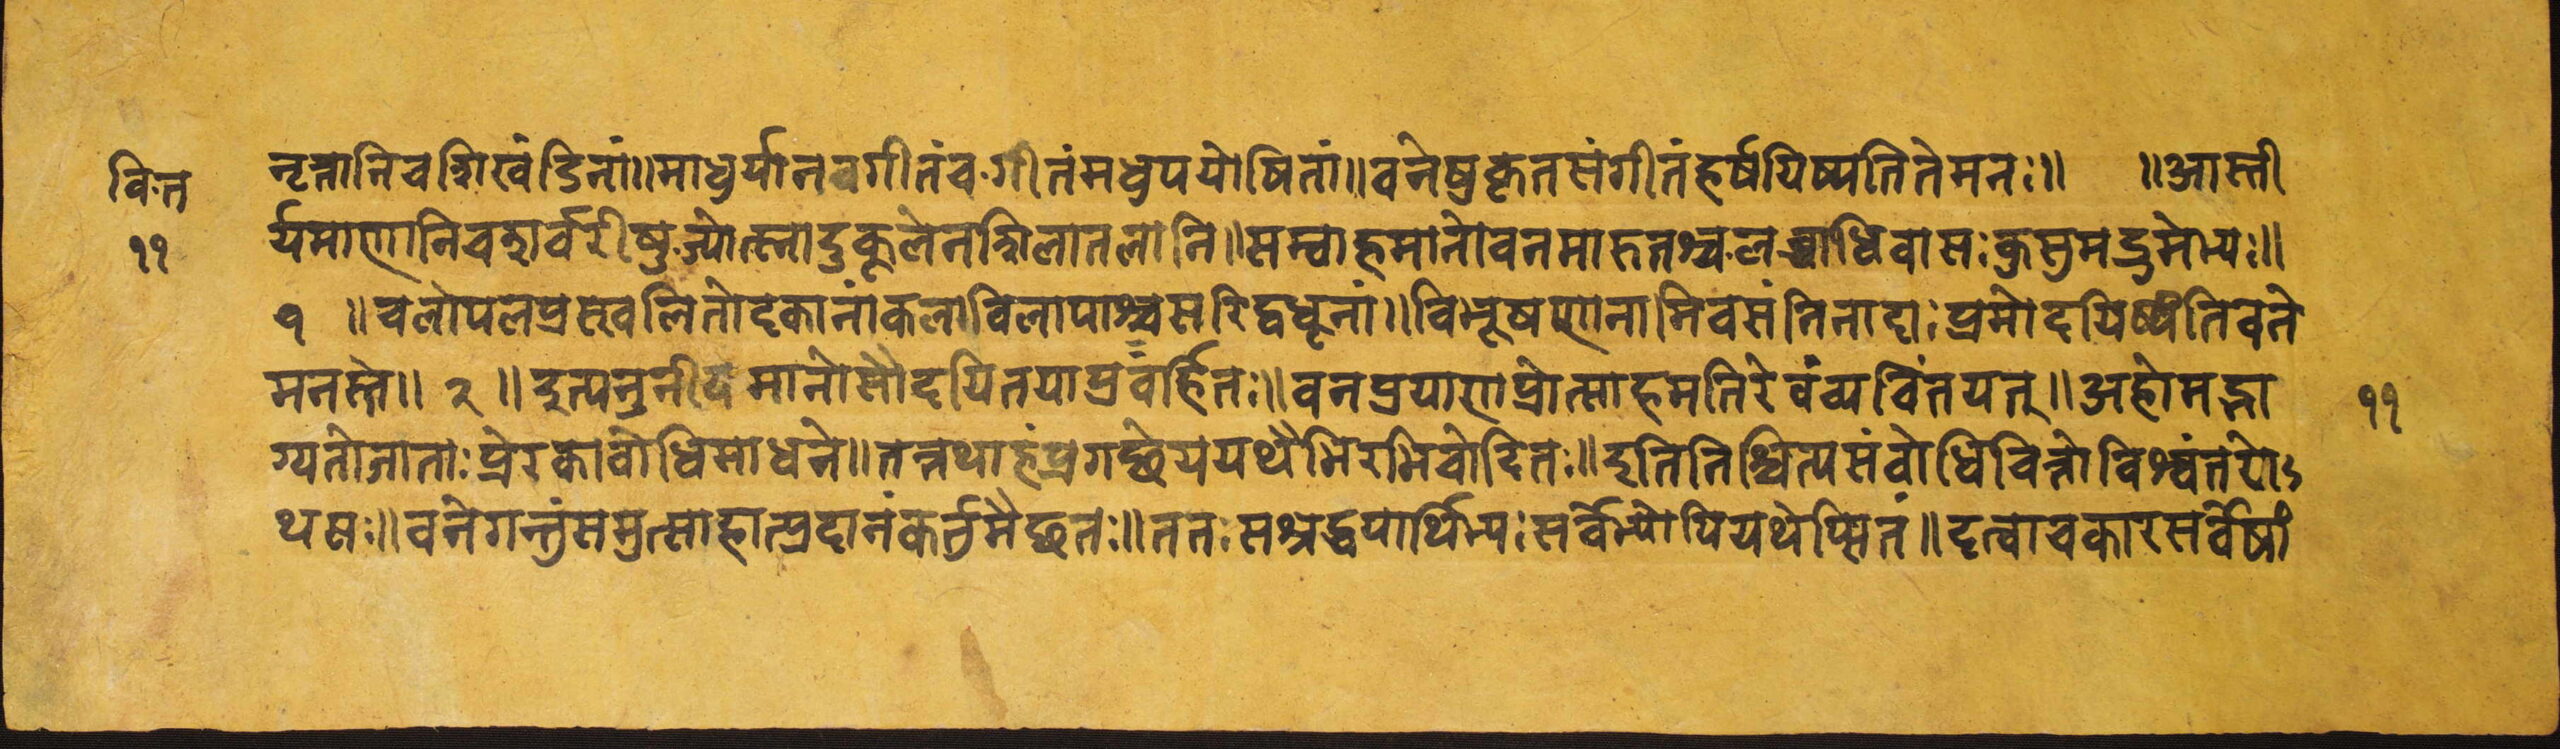 वि.त नृत्तानिचशिखंडिनां॥माधुर्यानवगीतंच.गीतंमधुपयोषितां॥वनेषुकृतसंगीतंहर्षयिष्यतितेमनः॥ ॥आस्ती
११ र्यमाणानिचशर्वरीषुज्योत्स्नादुकूलेनशिलातलानि॥सम्वाहमानोवनमारुतश्च.लब्धाधिवासःकुसुमद्रुमेभ्यः॥
१ ॥चलोपलप्रस्खलितोदकानांकलाविलापाश्चसरिद्वधूनां॥विभूषणानामिवसंनिनादाःप्रमोदयिष्यंतिवने
मनस्ते॥ २ ॥इत्यनुनीयमानोसौदयितयाप्रवर्हितः॥वनप्रयाणप्रोत्साहमतिरेवंव्यचिंतयत्॥अहोमद्भा ११
ग्यतोजाताःप्रेरकावोधिसाधने॥तत्तथाहंप्रगच्छेययथैभिरभिचोदितः॥इतिनिश्चित्यसंवोधिचित्तोविश्वंतरोऽ
थसः॥वनेगन्तुंसमुत्साहात्प्रदानंकर्त्तुमैच्छत॥ततःसश्रद्धयार्थिभ्यःसर्वेभ्योपियथेप्सितं॥दत्वाचकारसर्वेषां